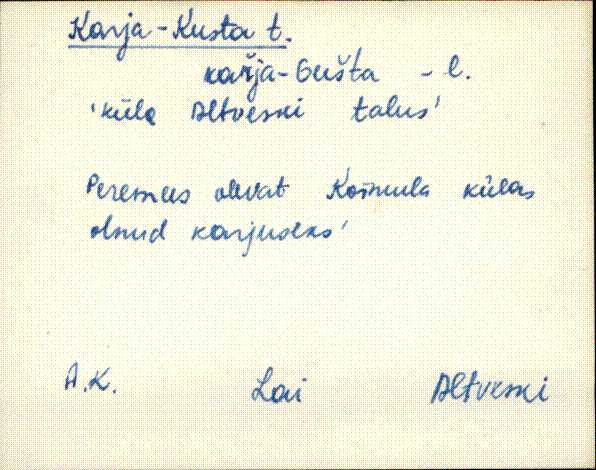 Karja-Kusta t.
kařja-Gušta - l.
'küla Altveski talus'
Peremees olevat Koimula külas
olnud karjuseks'
A.K. Lai Altveski